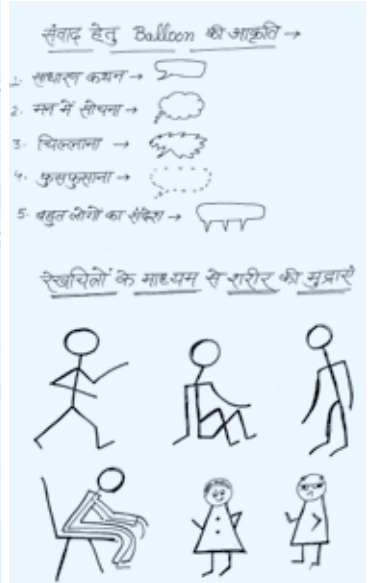 संवाद हेतु Balloon की आकृति →
1. साधारण कथन →
2. मन में सोचना →
3. चिल्लाना →
4. फुसफुसाना →
5. बहुत लोगों का संदेश →
रेखाचित्रों के माध्यम से शरीर की मुद्राएँ